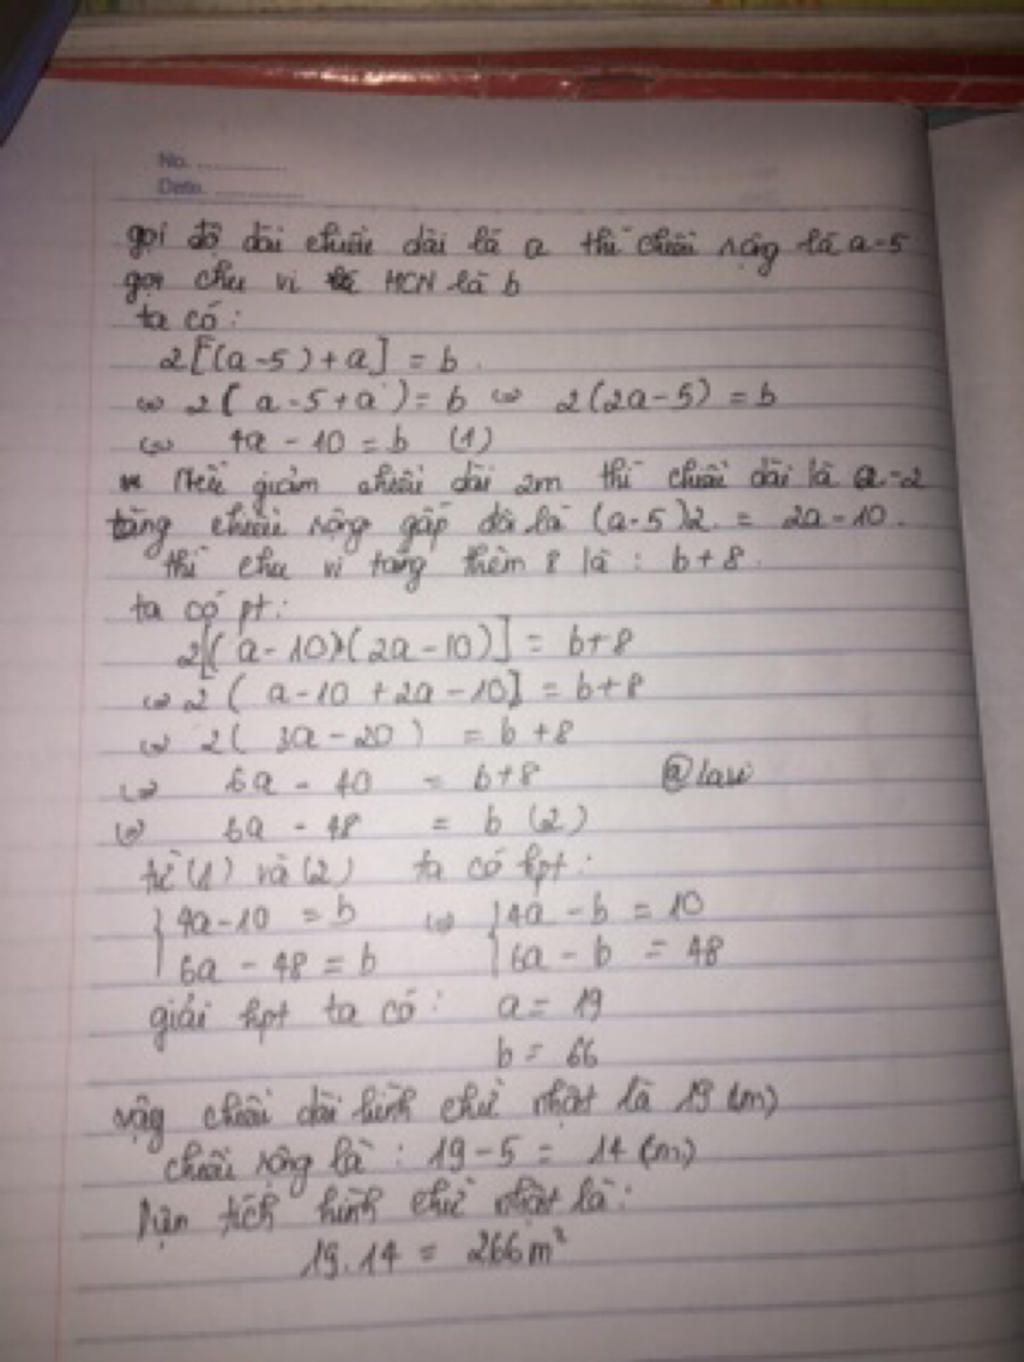 No. ............
Date. ............
gọi độ dài chiều dài là a thì chiều rộng là a-5
gọi chu vi HCN là b
ta có:
2[(a-5)+a] = b.
⇔ 2( a-5+a ) = b ⇔ 2(2a-5) = b
⇔ 4a - 10 = b (1)
Nếu giảm chiều dài 2m thì chiều dài là a-2
tăng chiều rộng gấp đôi là (a-5)2. = 2a-10.
thì chu vi tăng thêm 8 là : b+8.
ta có pt:
2[(a-10)+(2a-10)] = b+8
⇔ 2( a-10+2a-10] = b+8
⇔ 2( 3a-20 ) = b+8
⇔ 6a - 40 = b+8 @lavi
⇔ 6a - 48 = b (2)
từ (1) và (2) ta có hpt:
{ 4a-10 = b ⇔ { 4a - b = 10
{ 6a - 48 = b { 6a - b = 48
giải hpt ta có: a = 19
b = 66
vậy chiều dài hình chữ nhật là 19 (m)
chiều rộng là : 19-5 = 14 (m)
Diện tích hình chữ nhật là:
19.14 = 266m²